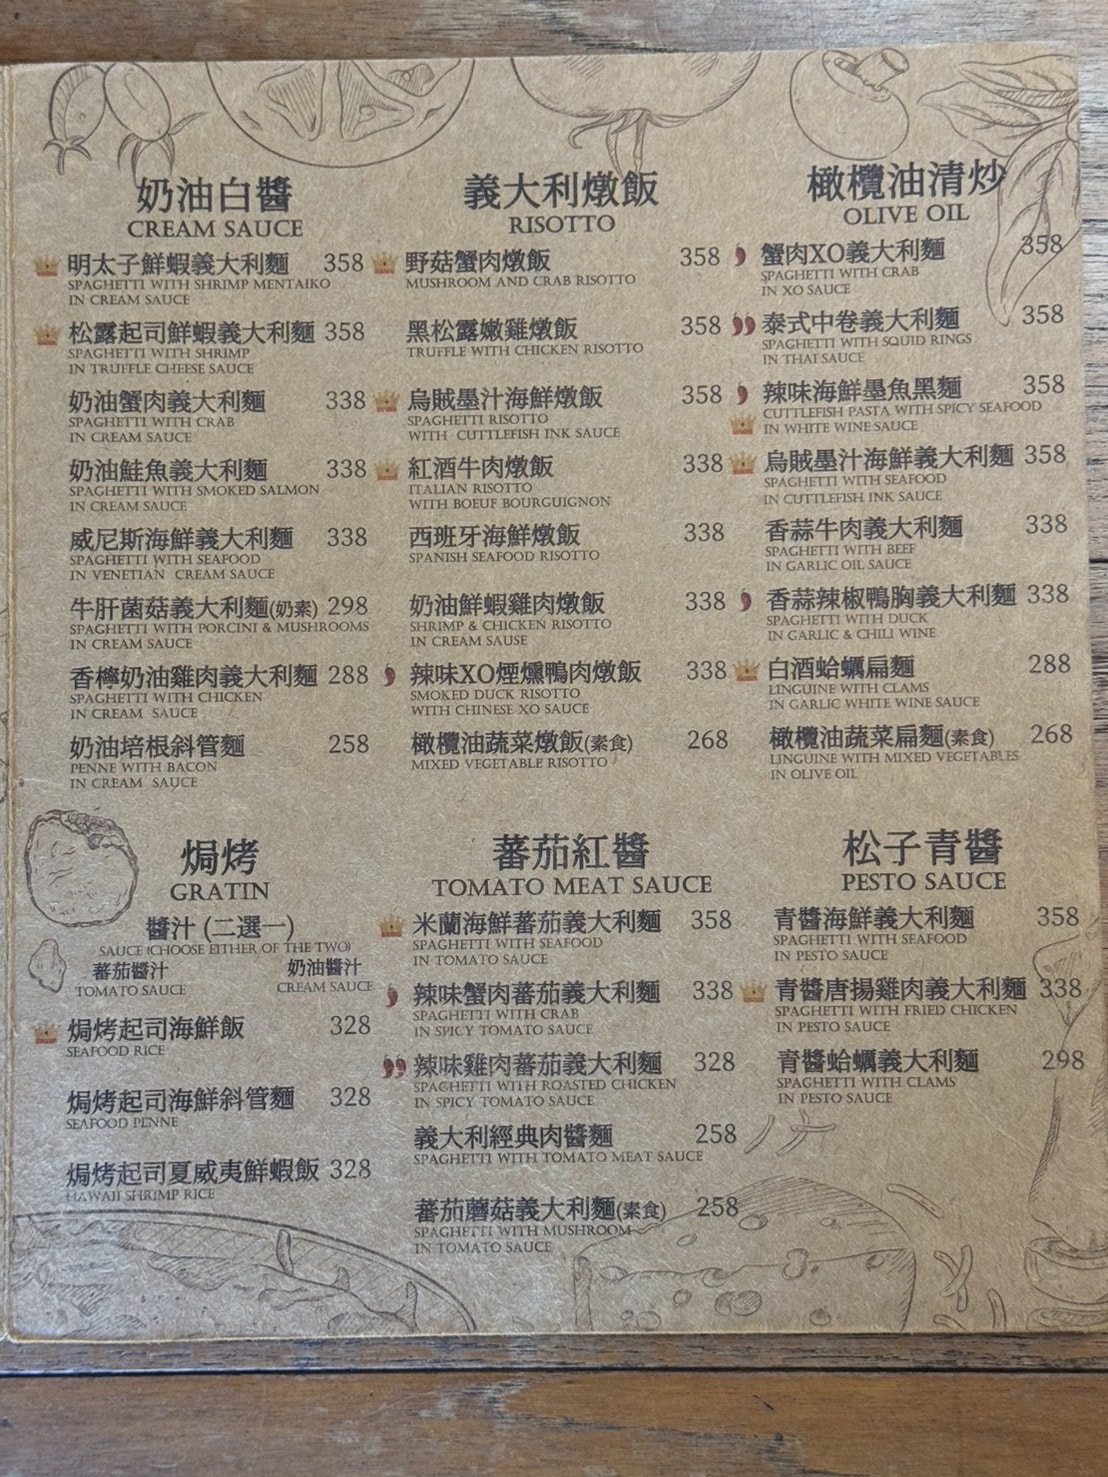 奶油白醬
CREAM SAUCE
明太子鮮蝦義大利麵 358
SPAGHETTI WITH SHRIMP MENTAIKO
IN CREAM SAUCE
松露起司鮮蝦義大利麵 358
SPAGHETTI WITH SHRIMP
IN TRUFFLE CHEESE SAUCE
奶油蟹肉義大利麵 338
SPAGHETTI WITH CRAB
IN CREAM SAUCE
奶油鮭魚義大利麵 338
SPAGHETTI WITH SMOKED SALMON
IN CREAM SAUCE
威尼斯海鮮義大利麵 338
SPAGHETTI WITH SEAFOOD
IN VENETIAN CREAM SAUCE
牛肝菌菇義大利麵(奶素) 298
SPAGHETTI WITH PORCINI & MUSHROOMS
IN CREAM SAUCE
香檸奶油雞肉義大利麵 288
SPAGHETTI WITH CHICKEN
IN CREAM SAUCE
奶油培根斜管麵 258
PENNE WITH BACON
IN CREAM SAUCE
義大利燉飯
RISOTTO
野菇蟹肉燉飯 358
MUSHROOM AND CRAB RISOTTO
黑松露嫩雞燉飯 358
TRUFFLE WITH CHICKEN RISOTTO
烏賊墨汁海鮮燉飯 358
SPAGHETTI RISOTTO
WITH CUTTLEFISH INK SAUCE
紅酒牛肉燉飯 338
ITALIAN RISOTTO
WITH BOEUF BOURGUIGNON
西班牙海鮮燉飯 338
SPANISH SEAFOOD RISOTTO
奶油鮮蝦雞肉燉飯 338
SHRIMP & CHICKEN RISOTTO
IN CREAM SAUSE
辣味XO煙燻鴨肉燉飯 338
SMOKED DUCK RISOTTO
WITH CHINESE XO SAUCE
橄欖油蔬菜燉飯(素食) 268
MIXED VEGETABLE RISOTTO
橄欖油清炒
OLIVE OIL
蟹肉XO義大利麵 358
SPAGHETTI WITH CRAB
IN XO SAUCE
泰式中卷義大利麵 358
SPAGHETTI WITH SQUID RINGS
IN THAI SAUCE
辣味海鮮墨魚黑麵 358
CUTTLEFISH PASTA WITH SPICY SEAFOOD
IN WHITE WINE SAUCE
烏賊墨汁海鮮義大利麵 358
SPAGHETTI WITH SEAFOOD
IN CUTTLEFISH INK SAUCE
香蒜牛肉義大利麵 338
SPAGHETTI WITH BEEF
IN GARLIC OIL SAUCE
香蒜辣椒鴨胸義大利麵 338
SPAGHETTI WITH DUCK
IN GARLIC & CHILI WINE
白酒蛤蠣扁麵 288
LINGUINE WITH CLAMS
IN GARLIC WHITE WINE SAUCE
橄欖油蔬菜扁麵(素食) 268
LINGUINE WITH MIXED VEGETABLES
IN OLIVE OIL
焗烤
GRATIN
醬汁 (二選一)
SAUCE (CHOOSE EITHER OF THE TWO)
蕃茄醬汁 奶油醬汁
TOMATO SAUCE CREAM SAUCE
焗烤起司海鮮飯 328
SEAFOOD RICE
焗烤起司海鮮斜管麵 328
SEAFOOD PENNE
焗烤起司夏威夷鮮蝦飯 328
HAWAII SHRIMP RICE
蕃茄紅醬
TOMATO MEAT SAUCE
米蘭海鮮蕃茄義大利麵 358
SPAGHETTI WITH SEAFOOD
IN TOMATO SAUCE
辣味蟹肉蕃茄義大利麵 338
SPAGHETTI WITH CRAB
IN SPICY TOMATO SAUCE
辣味雞肉蕃茄義大利麵 328
SPAGHETTI WITH ROASTED CHICKEN
IN SPICY TOMATO SAUCE
義大利經典肉醬麵 258
SPAGHETTI WITH TOMATO MEAT SAUCE
蕃茄蘑菇義大利麵(素食) 258
SPAGHETTI WITH MUSHROOM
IN TOMATO SAUCE
松子青醬
PESTO SAUCE
青醬海鮮義大利麵 358
SPAGHETTI WITH SEAFOOD
IN PESTO SAUCE
青醬唐揚雞肉義大利麵 338
SPAGHETTI WITH FRIED CHICKEN
IN PESTO SAUCE
青醬蛤蠣義大利麵 298
SPAGHETTI WITH CLAMS
IN PESTO SAUCE